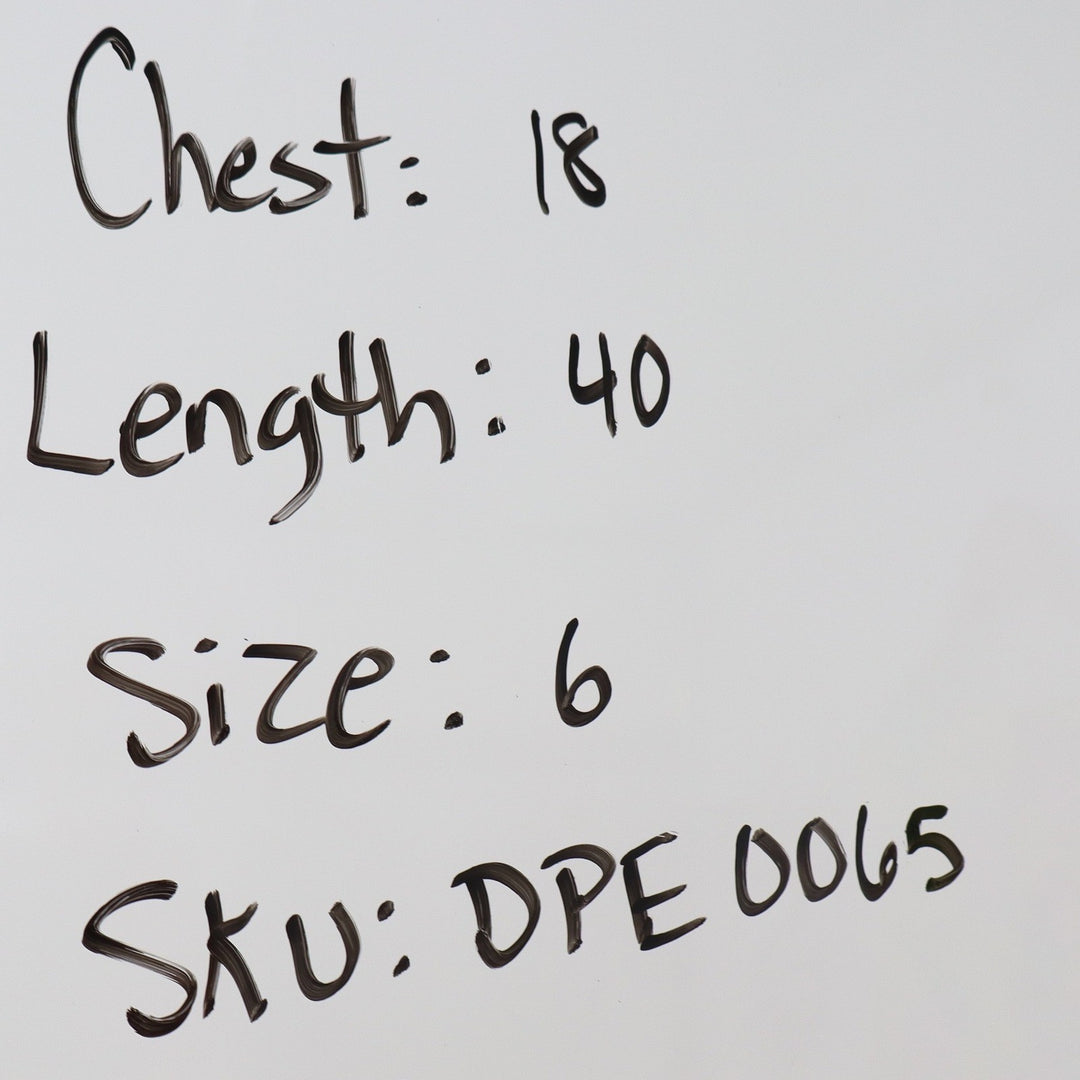 Chest: 18
Length: 40
Size: 6
SKU: DPE 0065